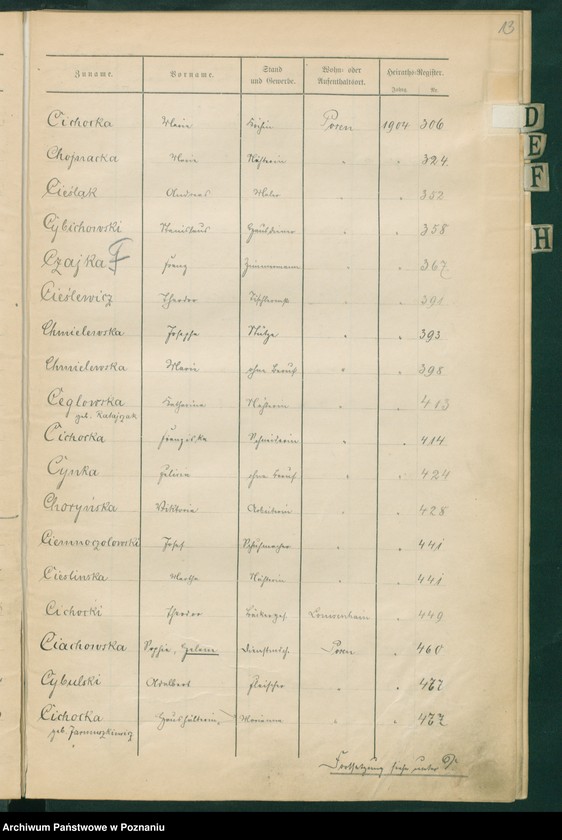 13
Zuname. Vorname. Stand und Gewerbe. Wohn- oder Aufenthaltsort. Heiraths-Register. Jahrg. Nr.
Cichocka Marie Köchin Posen 1904 306
Chojnacka Marie Näherin " " 324
Cieślak Andreas Maler " " 352
Cybichowski Stanislaus Hausdiener " " 358
Czajka Franz Zimmermann " " 367
Cieślewicz Theodor " " 391
Chmielewska Josepha Stütze " " 393
Chmielewska Marie ohne Beruf " " 398
Ceglowska Katharina Näherin " " 413
geb. Ratajczak
Cichocka Franziska Schneiderin " " 414
Cynka Helene ohne Beruf " " 424
Choryńska Viktoria Arbeiterin " " 428
Ciemnoczolowski Josef Schuhmacher " " 441
Cieslinska Martha Näherin " " 441
Cichocki Theodor Bäckerges. " 449
Ciachowska Sophie, Helene Dienstmdch. Posen " 460
Cybulski Adalbert Fleischer " " 467
Cichocka Haushälterin, Marianna " " 472
geb. Jarmuszkiewicz
Fortsetzung siehe unter
D
E
F
H
Archiwum Państwowe w Poznaniu